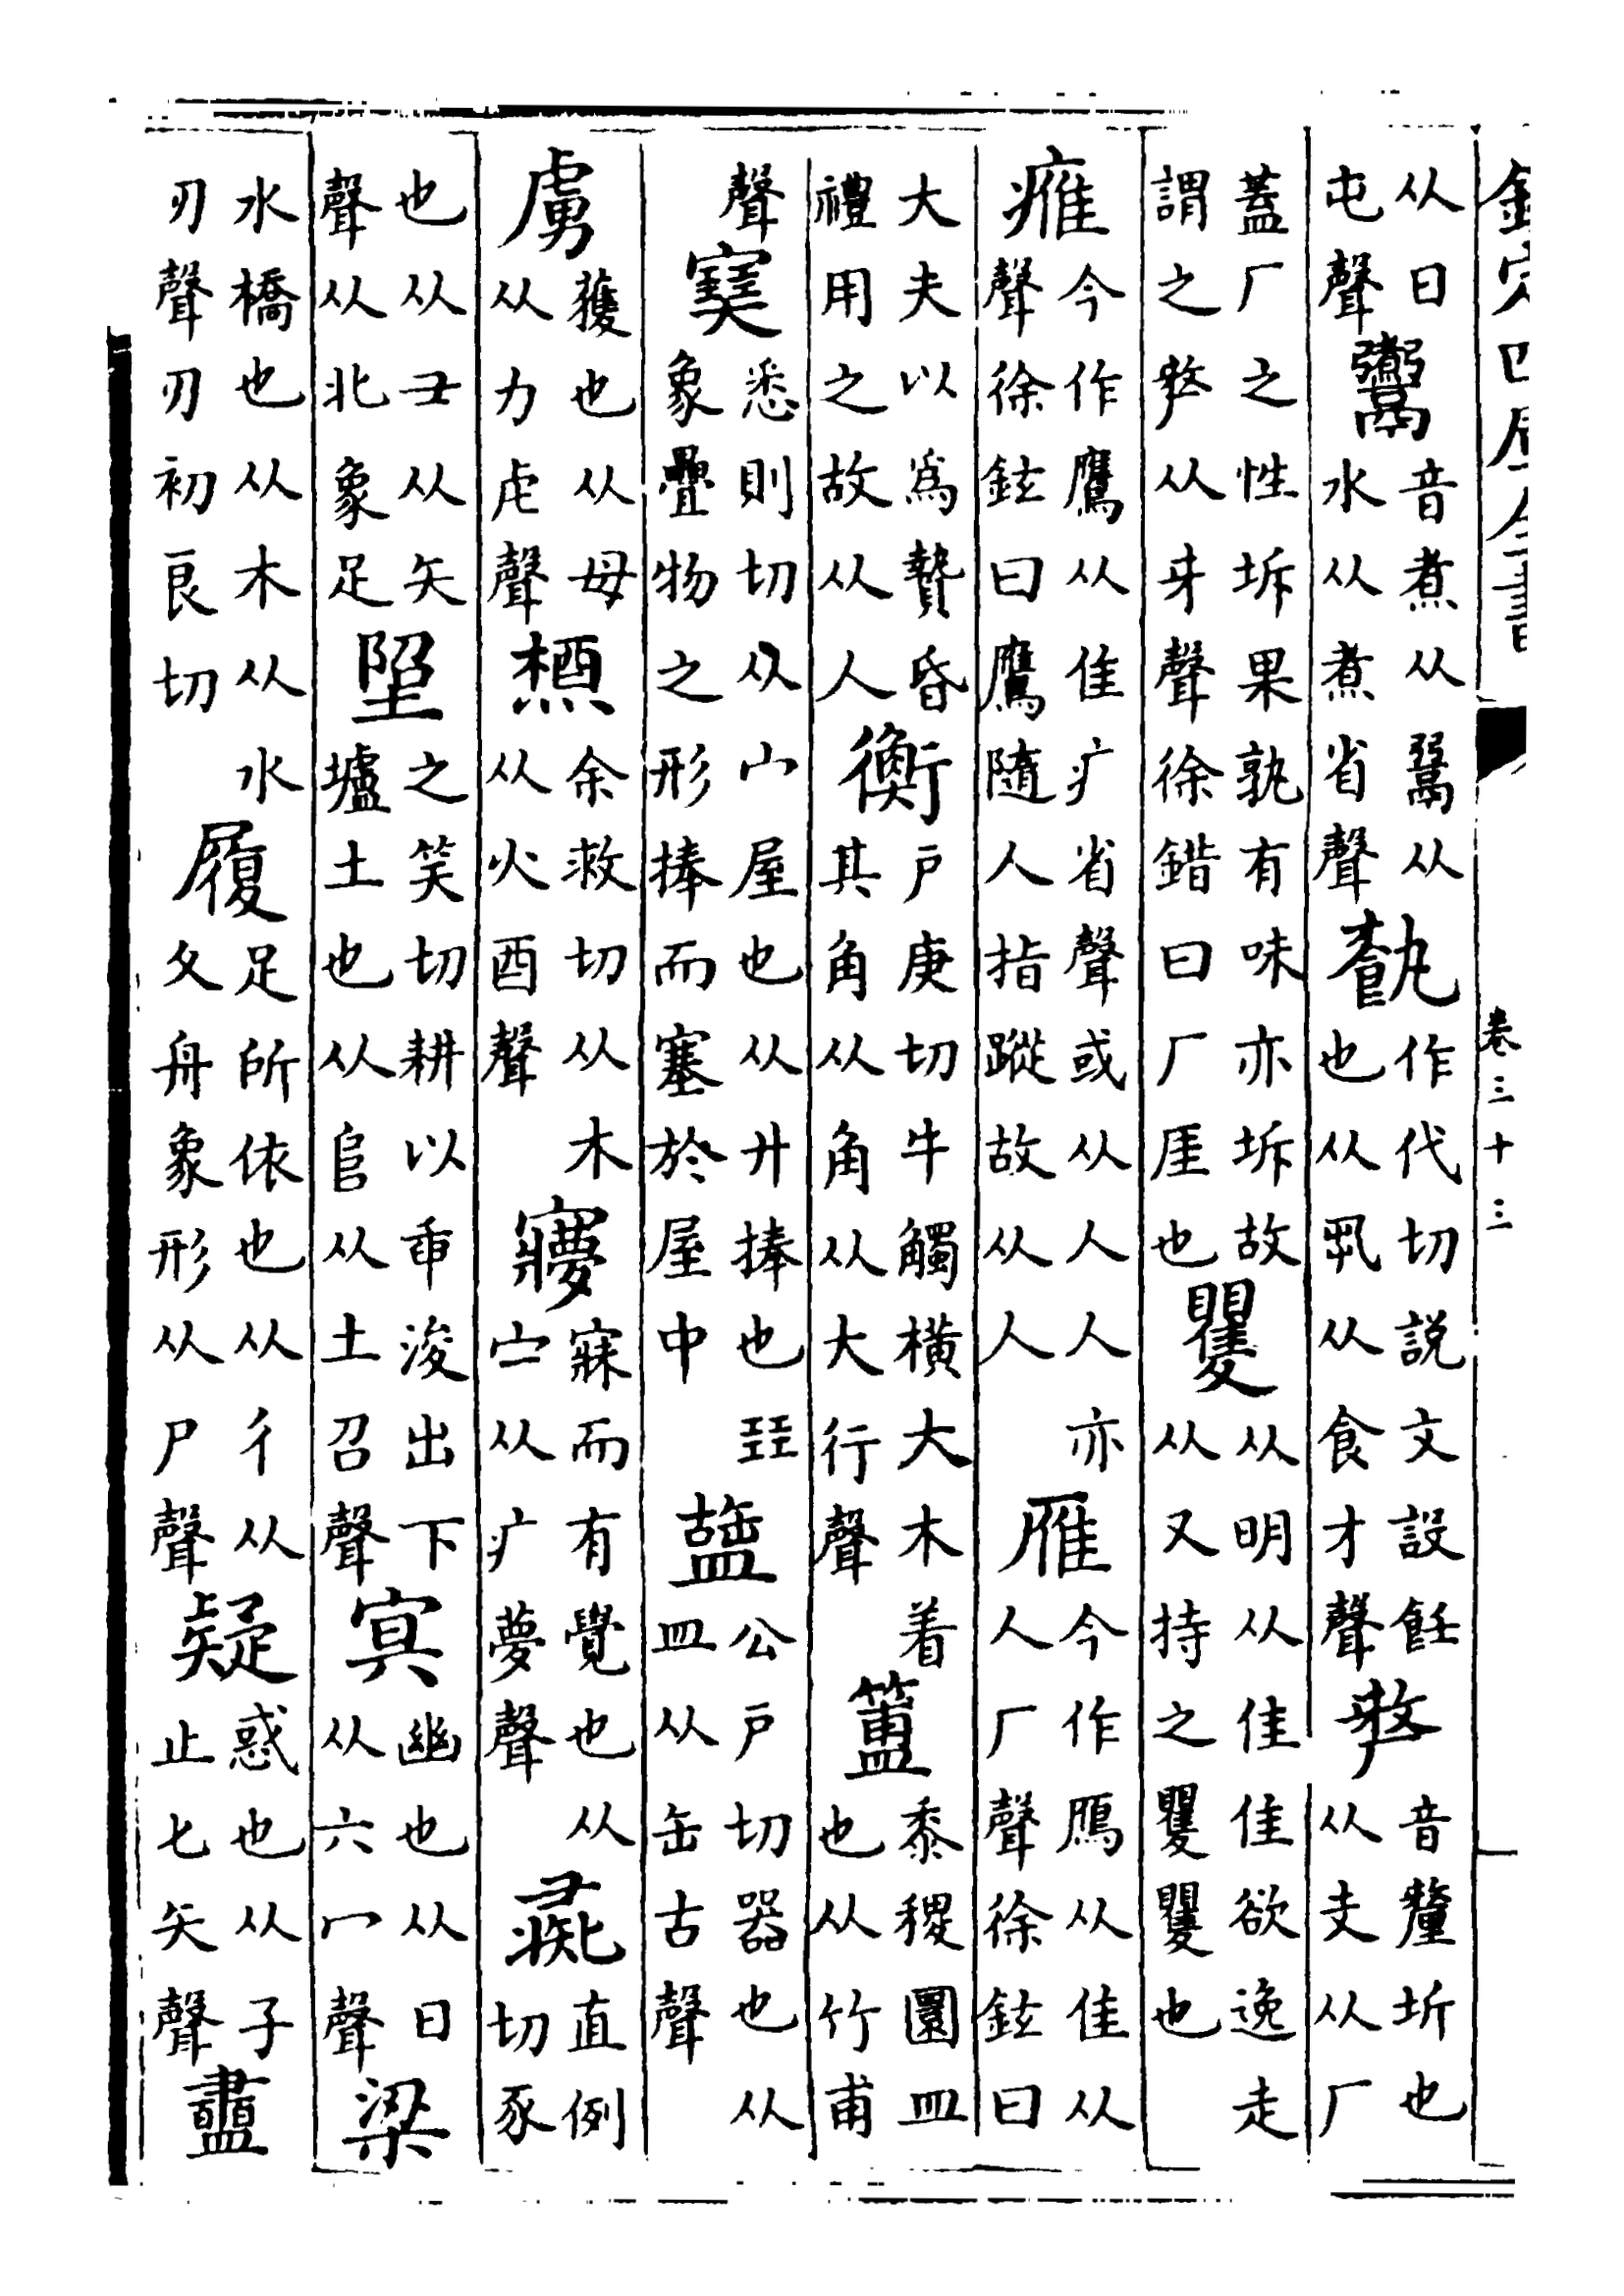 欽定四庫全書　卷三十三
从日屯聲鬻音煮从䰜从水从煮省聲𩜠作代切説文設飪也从丮从食才聲𠩺音釐坼也从攴从厂
蓋厂之性坼果孰有味亦坼故謂之𠩺从未聲徐鍇曰厂厓也矍从明从隹隹欲逸走从又持之矍矍也
㾕今作鷹从隹疒省聲或从人人亦聲徐鉉曰鷹隨人指蹤故从人雁今作鴈从隹从人厂聲徐鉉曰
大夫以爲贄昏禮用之故从人衡戶庚切牛觸橫大木着其角从角从大行聲簠黍稷圜皿也从竹甫
聲𡫳悉則切从宀屋也从廾捧也㠭象疊物之形捧而塞於屋中盬公戶切器也从皿从缶古聲
虜獲也从毌从力虍聲槱余救切从木从火酉聲㝱寐而有覺也从宀从疒夢聲彘直例切豕
也从彑从矢聲从北象足𨻼之笑切耕以臿浚出下壚土也从𨸏从土召聲冥幽也从日从六冖聲梁
水橋也从木从水刃聲刃初良切履足所依也从彳从夊舟象形从尸聲疑惑也从子止匕矢聲盡